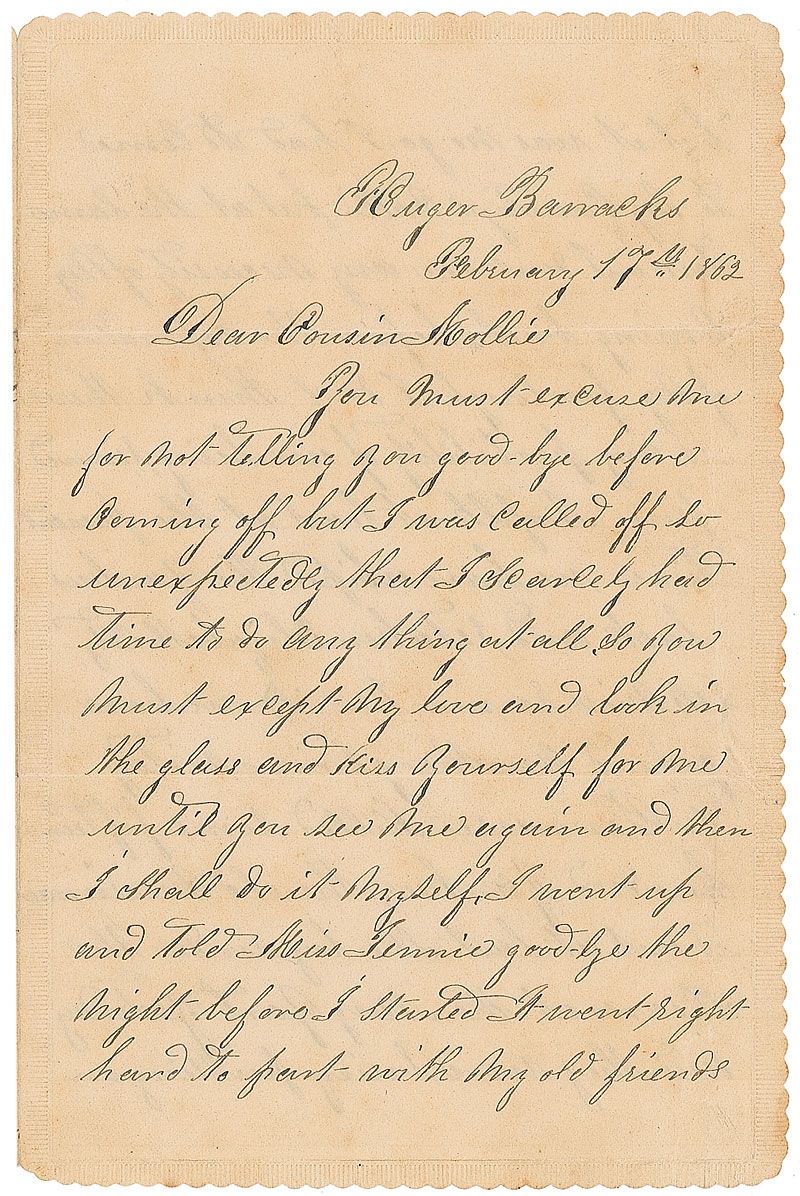 Huger Barracks
February 17th 1862
Dear Cousin Mollie
You must excuse me
for not telling you good-bye before
Coming off but I was Called off so
unexpectedly that I Scarcely had
time to do any thing at all So you
must except my love and look in
the glass and Kiss yourself for me
until you see me again and then
I Shall do it myself. I went up
and told Miss Jennie good-bye the
night before I Started It went right
hard to part with my old friends